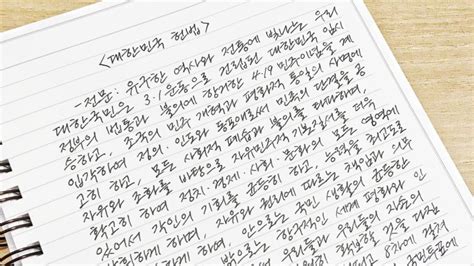 <대한민국 헌법>
- 전문: 유구한 역사와 전통에 빛나는 우리
대한국민은 3·1운동으로 건립된 대한민국 임시
정부의 법통과 불의에 항거한 4·19 민주이념을 계
승하고, 조국의 민주개혁과 평화적 통일의 사명에
입각하여 정의·인도와 동포애로써 민족의 단결을 공
고히 하고, 모든 사회적 폐습과 불의를 타파하며,
자율과 조화를 바탕으로 자유민주적 기본질서를 더욱
확고히 하여 정치·경제·사회·문화의 모든 영역에
있어서 각인의 기회를 균등히 하고, 능력을 최고도로
발휘하게 하며, 자유와 권리에 따르는 책임과 의무
하게 하여, 안으로는 국민 생활의 균등한
밖으로는 항구적인 세계 평화와 인
우리들과 우리들의 자손의
확보할 것을 다짐
8차에 걸쳐
국민투표에